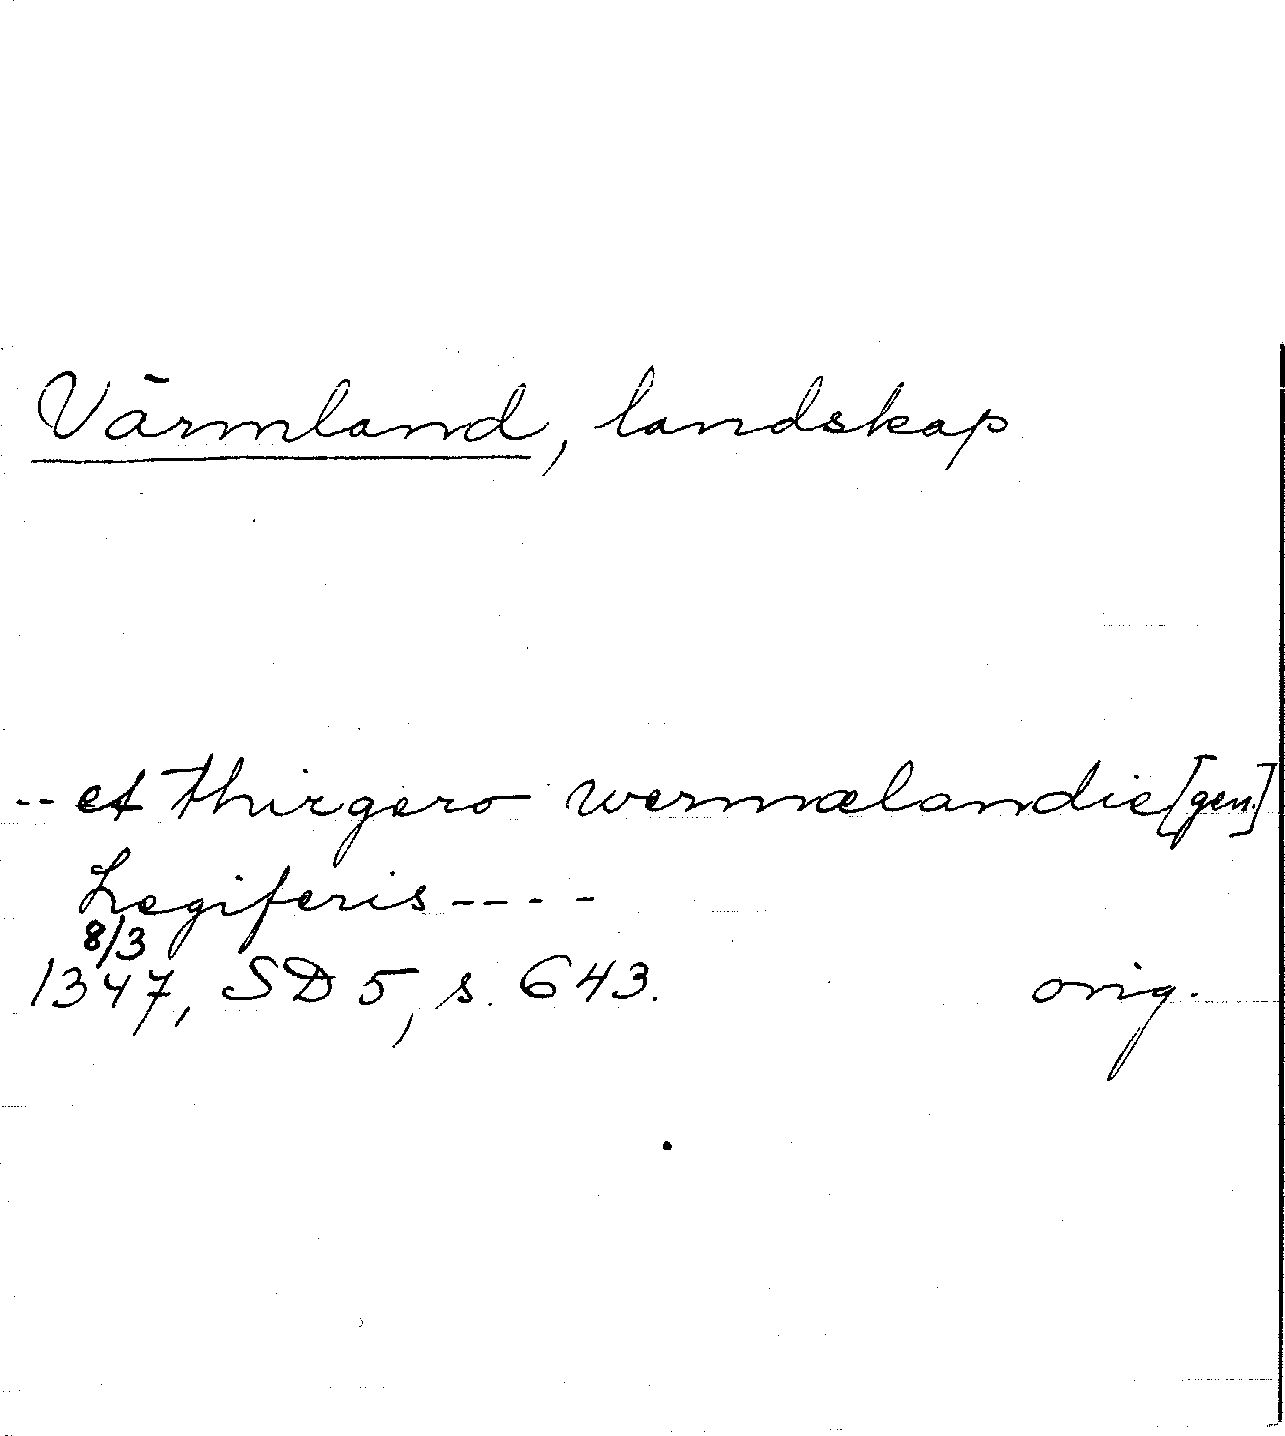 Värmland, landskap
-- et thirgero wermælandie [gen.]
Legiferis ----
8/3
1347, SD 5, s. 643. orig.